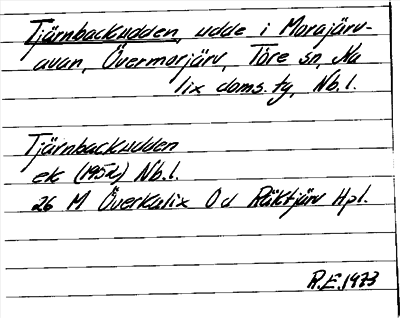 Tjärnbackudden, udde i Morajärv-
avan, Övermorjärv, Töre sn, Ka
lix doms. tg, Nb.l.
Tjärnbackudden
ek (1952) Nb.l.
26 M Överkalix Od Räktjärv Hpl.
R.E. 1973